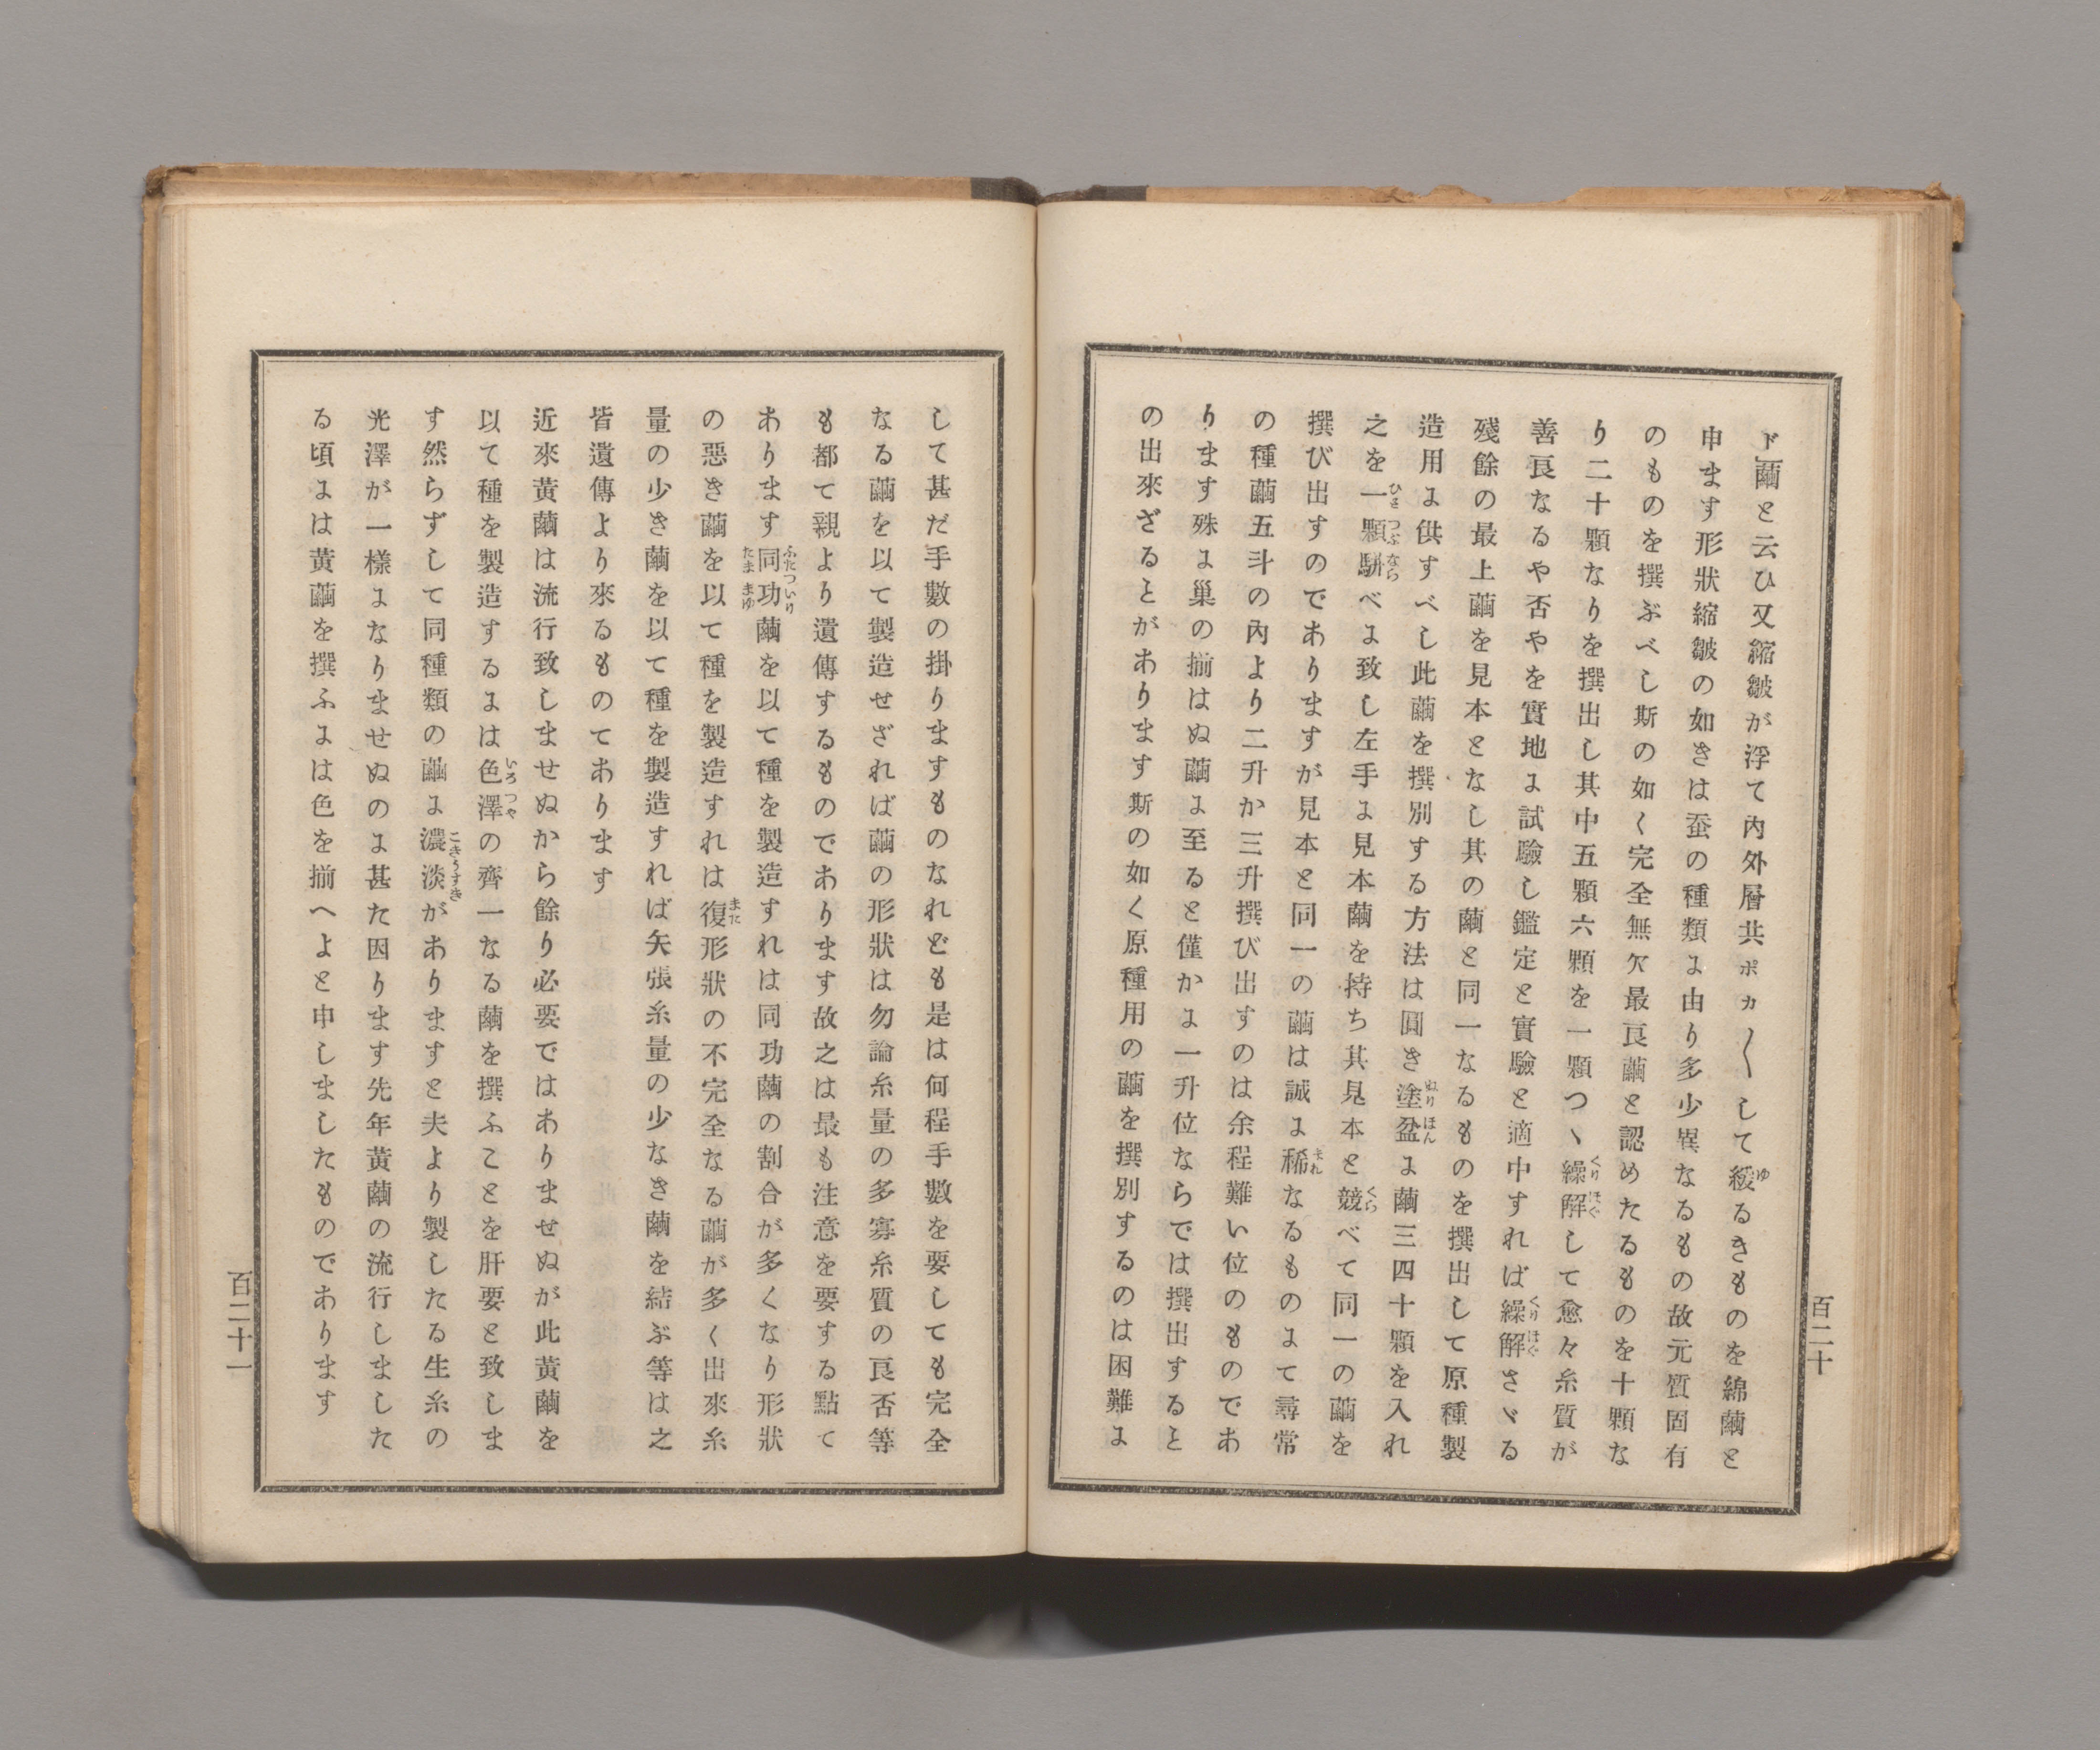 ド」繭と云ひ又縮皺が浮て內外層共ポカ〱して緩るきものを綿繭と
申ます形狀縮皺の如きは蚕の種類に由り多少異なるもの故元質固有
のものを撰ぶべし斯の如く完全無欠最良繭と認めたるものを十顆な
り二十顆なりを撰出し其中五顆六顆を一顆つゝ繰解して愈々糸質が
善良なるや否やを實地に試驗し鑑定と實驗と適中すれば繰解さゞる
殘餘の最上繭を見本となし其の繭と同一なるものを撰出して原種製
造用に供すべし此繭を撰別する方法は圓き塗盆に繭三四十顆を入れ
之を一顆駢べに致し左手に見本繭を持ち其見本と競べて同一の繭を
撰び出すのでありますが見本と同一の繭は誠に稀なるものにて尋常
の種繭五斗の內より二升か三升撰び出すのは余程難い位のものであ
ります殊に巢の揃はぬ繭に至ると僅かに一升位ならでは撰出すると
の出來ざるとがあります斯の如く原種用の繭を撰別するのは困難に
百二十
して甚だ手數の掛りますものなれども是は何程手數を要しても完全
なる繭を以て製造せざれば繭の形狀は勿論糸量の多寡糸質の良否等
も都て親より遺傳するものであります故之は最も注意を要する點て
あります同功繭を以て種を製造すれは同功繭の割合が多くなり形狀
の惡き繭を以て種を製造すれは復形狀の不完全なる繭が多く出來糸
量の少き繭を以て種を製造すれば矢張糸量の少なき繭を結ぶ等は之
皆遺傳より來るものてあります
近來黃繭は流行致しませぬから餘り必要ではありませぬが此黃繭を
以て種を製造するには色澤の齊一なる繭を撰ふことを肝要と致しま
す然らずして同種類の繭に濃淡がありますと夫より製したる生糸の
光澤が一樣になりませぬのに甚た因ります先年黃繭の流行しました
る頃には黃繭を撰ふには色を揃へよと申しましたものであります
百二十一